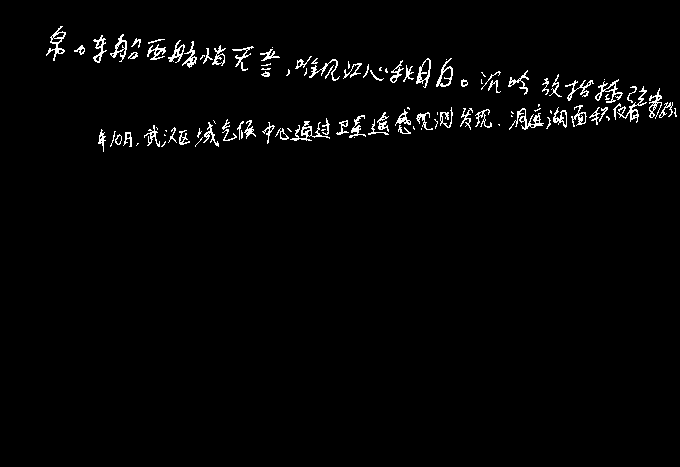 帛。东船西舫悄无言，唯见江心秋月白。沉吟放拨插弦中
年10月，武汉区域气候中心通过卫星遥感观测发现、洞庭湖面积仅有